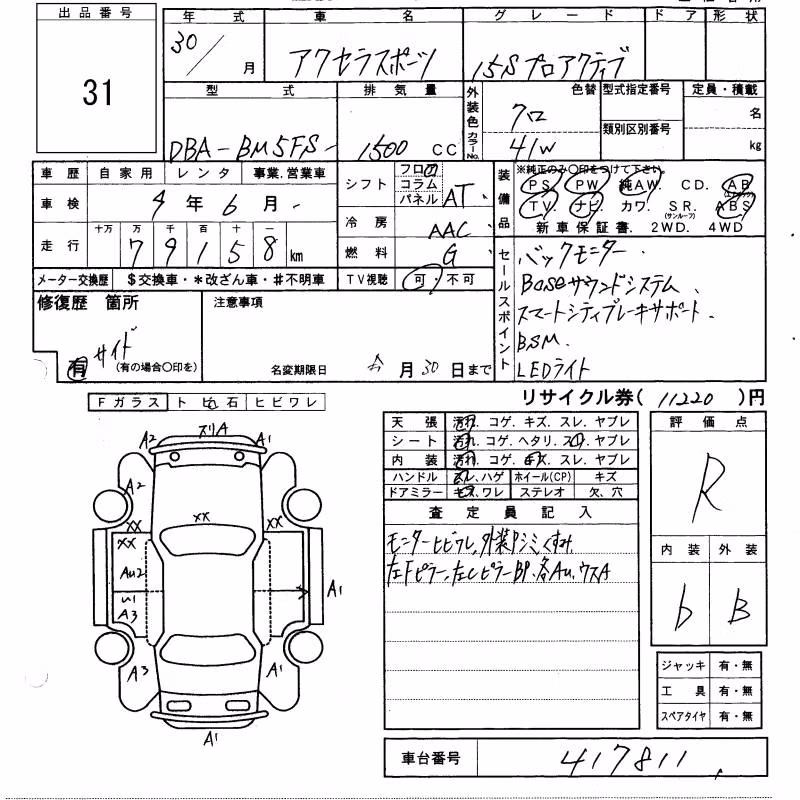 出品番号
31
年式 車名 グレード ドア 形状
30/ 月 アクセラスポーツ 15Sプロアクティブ
型式 排気量 外装色 色替 型式指定番号 定員・積載
DBA-BM5FS 1500 CC クロ 41W カラーNo. 類別区別番号 名 kg
車歴 自家用 レンタ 事業.営業車
車検 4年 6月
走行 十万 万 千 百 十 一
79158 km
メーター交換歴 $交換車・*改ざん車・#不明車
シフト フロア コラム パネル AT
冷房 AAC
燃料 G
TV視聴 可・不可
装備品 ※純正のみ〇印をつけて下さい。
PS. PW 純AW. CD. AB
TV. ナビ カワ. SR. (サンルーフ) ABS
新車保証書. 2WD. 4WD
セールスポイント
バックモニター
Boseサウンドシステム
スマートシティブレーキサポート
BSM
LEDライト
修復歴 箇所 注意事項
サイド
有 (有の場合〇印を) 名変期限日 月 30日まで
リサイクル券( 11220 )円
Fガラス トビ石 ヒビワレ
A2 ズリA A1
A2
XX XX XX
XX
AU2
A3
A1
A3 A1
A1
天張 汚れ. コゲ. キズ. スレ. ヤブレ
シート 汚れ. コゲ. ヘタリ. スレ. ヤブレ
内装 汚れ. コゲ. キズ. スレ. ヤブレ
ハンドル スレ、ハゲ ホイール(CP) キズ
ドアミラー キズ、ワレ ステレオ 欠、穴
査定員記入
モニターヒビワレ、外装シミ、くすみ
左Fピラー、左Cピラー BP、各AU、ウスA
評価点
R
内装 外装
b B
ジャッキ 有・無
工具 有・無
スペアタイヤ 有・無
車台番号 417811